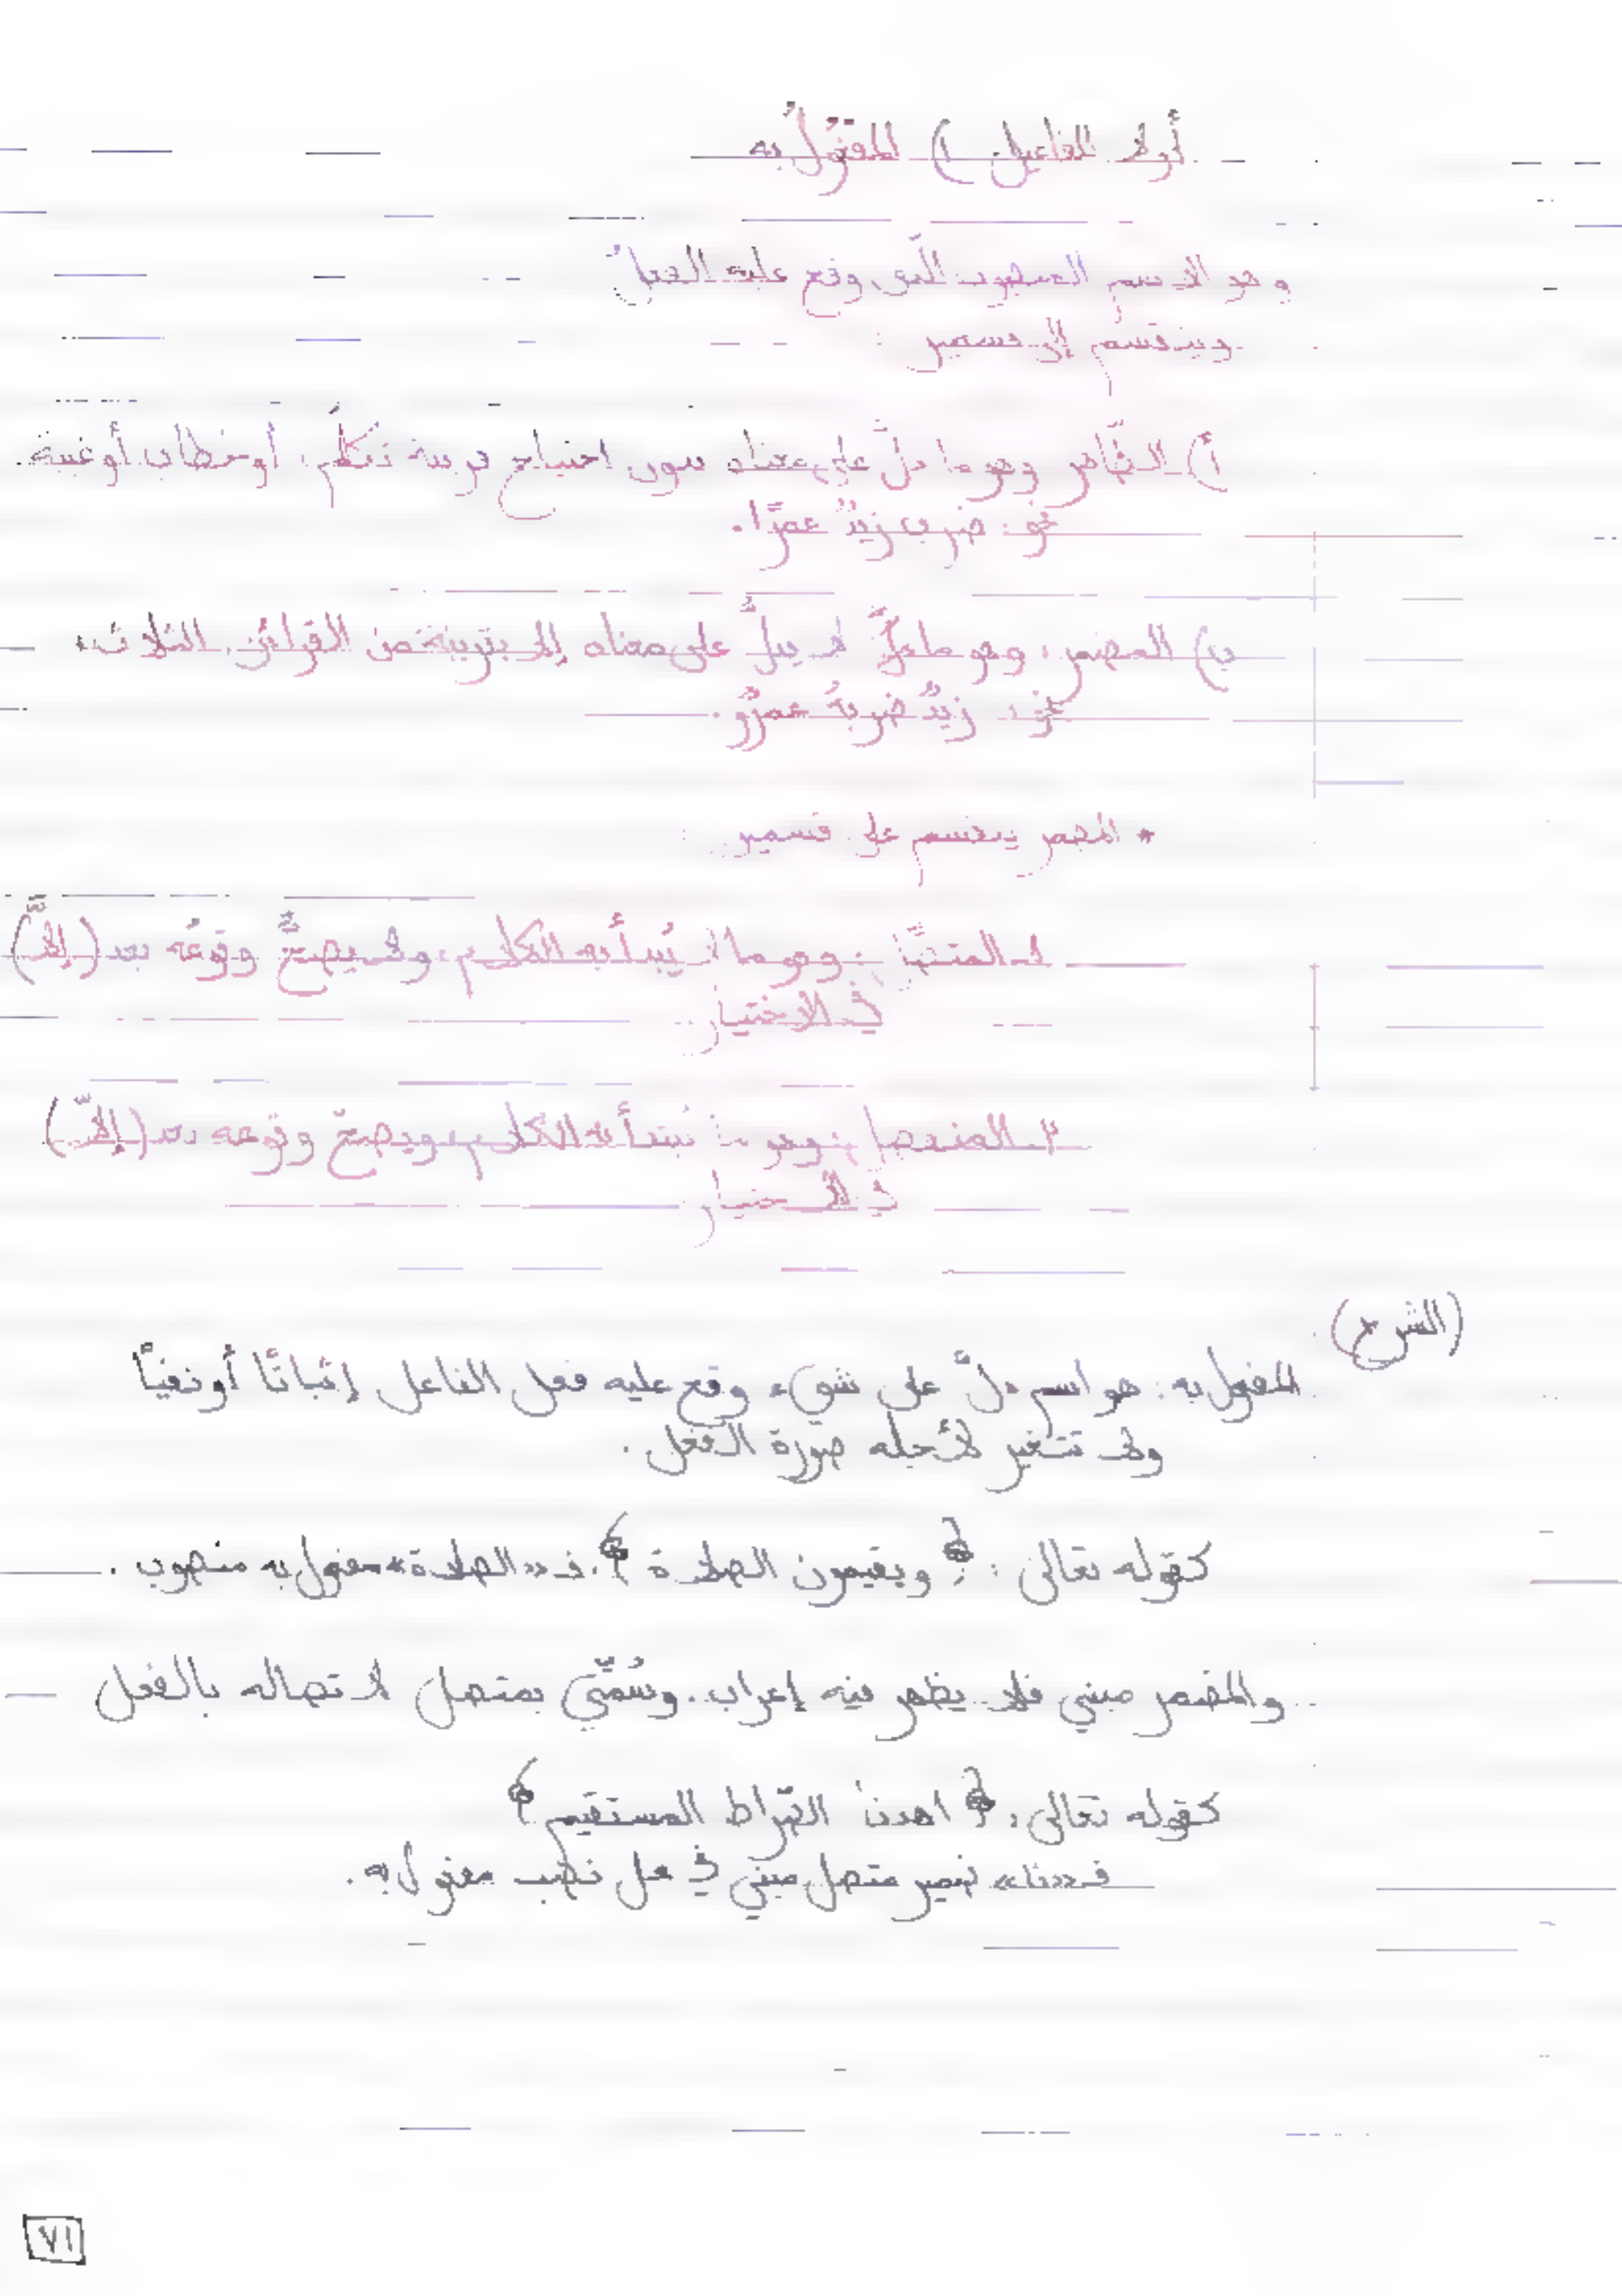 أولا المفاعيل ١) المفعُولُ به
وهو الاسم المنصوب الذي وقع عليه الفعلُ
وينقسم إلى قسمين :
أ) الظّاهر وهو ما دلّ على معناه بدون احتياج قرينة تكلُّم، أو خطاب أو غيبة.
نحو: ضرب زيدٌ عمرًا.
ب) المضمر، وهو ما لا يدلُّ على معناه إلا بقرينة من القرائن الثلاث،
نحو: زيدٌ ضربهُ عمرٌو.
* المضمر ينقسم على قسمين :
١ـ المتصل : وهو ما لا يُبدأ به الكلام، ولا يصحُّ وقوعُه بعد (إلاَّ)
في الاختيار
٢ـ المنفصل : وهو ما يُبتدأ به الكلام ويصحّ وقوعه بعد (إلاّ)
في الاختيار
(الشرح)
المفعول به: هو اسم دلّ على شيء وقع عليه فعل الفاعل إثباتًا أو نفيًا
ولا تتغير لأجله صورة الفعل.
كقوله تعالى : ﴿ ويقيمون الصلاة ﴾. فـ «الصلاة» مفعول به منصوب.
والمضمر مبني فلا يظهر فيه إعراب. وسُمّي بمتصل لاتصاله بالفعل
كقوله تعالى: ﴿ اهدنا الصّراط المستقيم ﴾
فـ «نا» ضمير متصل مبني في محل نصب مفعول به.
٧١